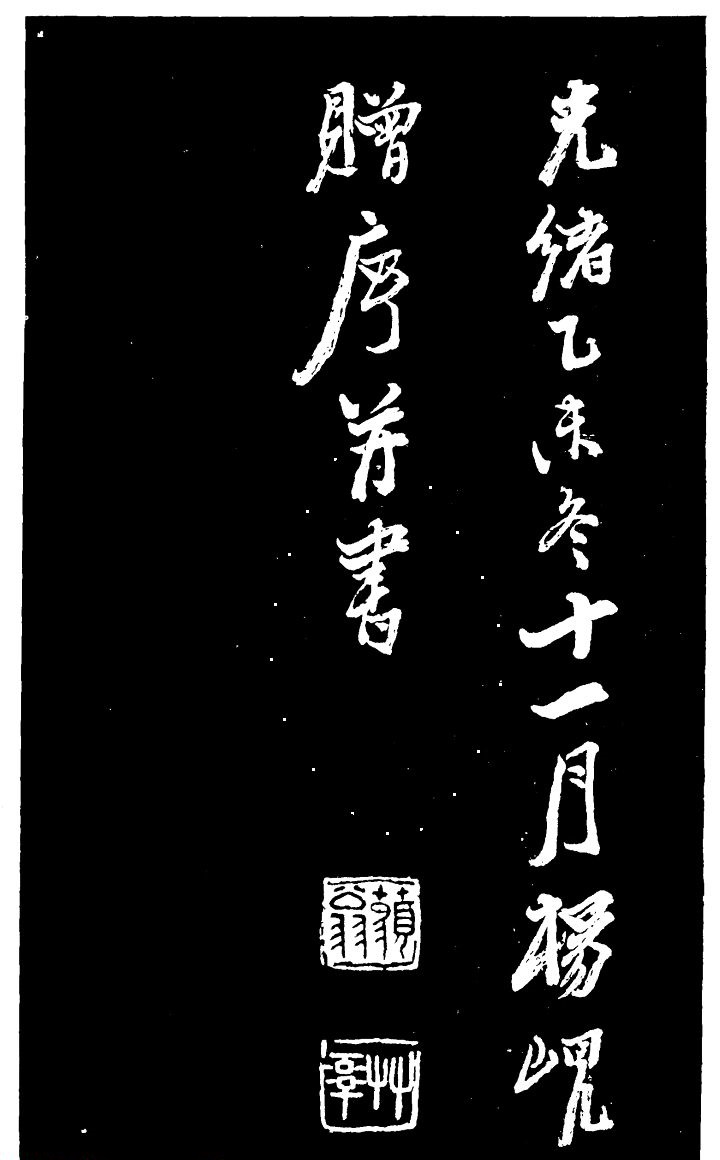 光緒乙未冬十一月楊峴
贈序并書
藐翁